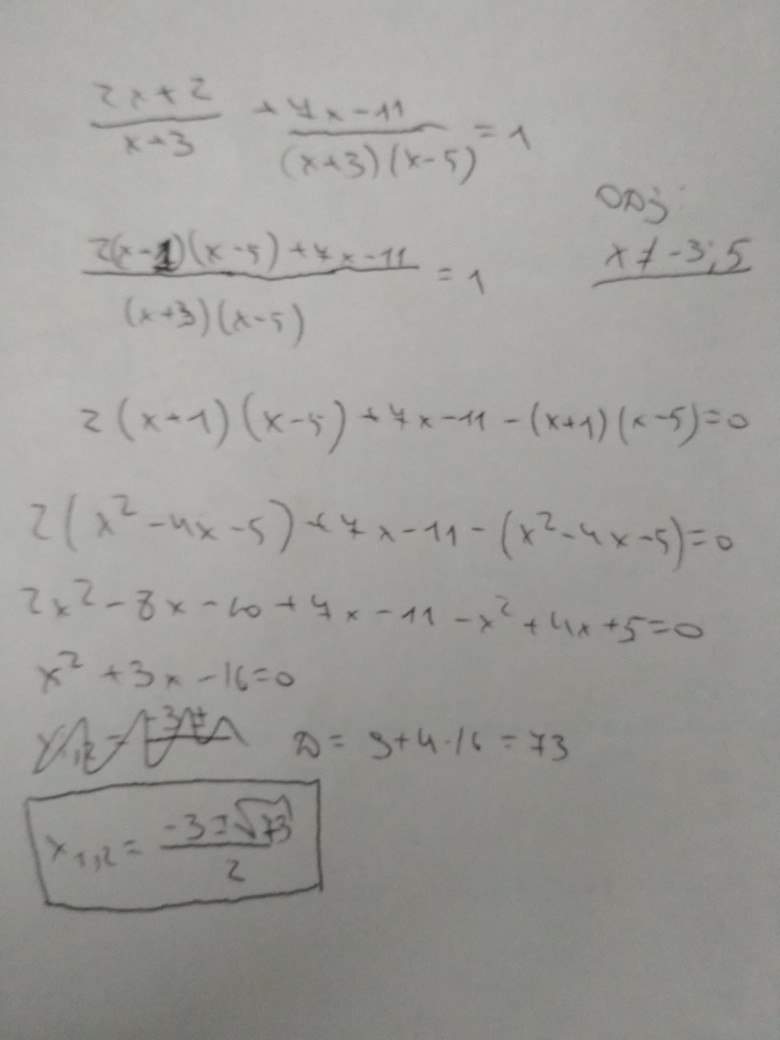 (2x+2)/(x+3) + (7x-11)/((x+3)(x-5)) = 1
ОДЗ:
(2(x-1)(x-5)+7x-11)/((x+3)(x-5)) = 1
x ≠ -3; 5
2(x+1)(x-5)+7x-11-(x+1)(x-5)=0
2(x²-4x-5)+7x-11-(x²-4x-5)=0
2x²-8x-10+7x-11-x²+4x+5=0
x²+3x-16=0
D = 9+4·16=73
x₁,₂ = (-3±√73)/2